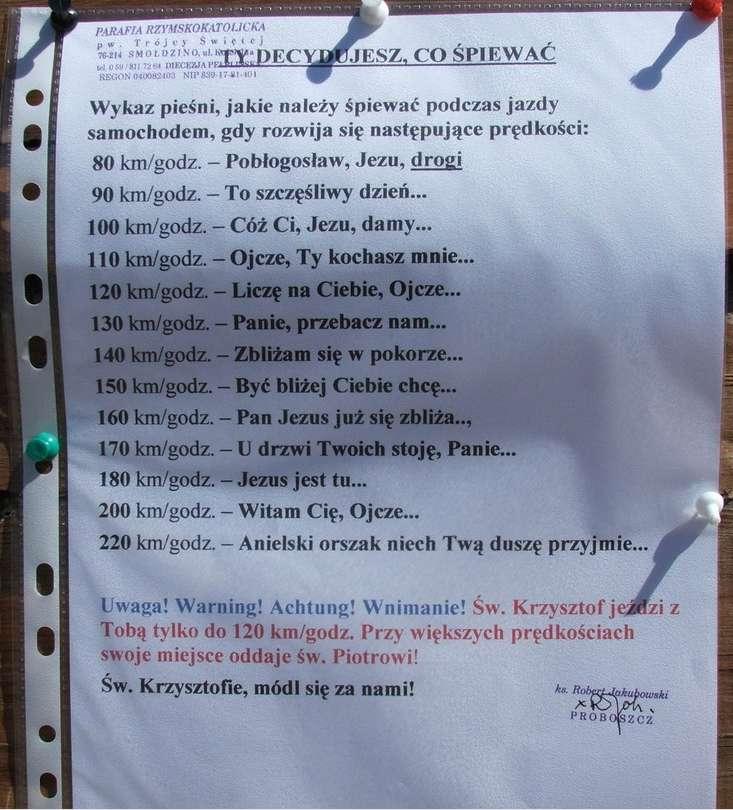 PARAFIA RZYMSKOKATOLICKA
pw. Trójcy Świętej
76-214 SMOŁDZINO, ul.
tel. 0 59 / 811 72 64 DIECEZJA
REGON 040082403 NIP 839-17-81-401
TY DECYDUJESZ, CO ŚPIEWAĆ
Wykaz pieśni, jakie należy śpiewać podczas jazdy
samochodem, gdy rozwija się następujące prędkości:
80 km/godz. – Pobłogosław, Jezu, drogi
90 km/godz. – To szczęśliwy dzień...
100 km/godz. – Cóż Ci, Jezu, damy...
110 km/godz. – Ojcze, Ty kochasz mnie...
120 km/godz. – Liczę na Ciebie, Ojcze...
130 km/godz. – Panie, przebacz nam...
140 km/godz. – Zbliżam się w pokorze...
150 km/godz. – Być bliżej Ciebie chcę...
160 km/godz. – Pan Jezus już się zbliża..,
170 km/godz. – U drzwi Twoich stoję, Panie...
180 km/godz. – Jezus jest tu...
200 km/godz. – Witam Cię, Ojcze...
220 km/godz. – Anielski orszak niech Twą duszę przyjmie...
Uwaga! Warning! Achtung! Wnimanie! Św. Krzysztof jeździ z
Tobą tylko do 120 km/godz. Przy większych prędkościach
swoje miejsce oddaje św. Piotrowi!
Św. Krzysztofie, módl się za nami!
ks. Robert Jakubowski
PROBOSZCZ